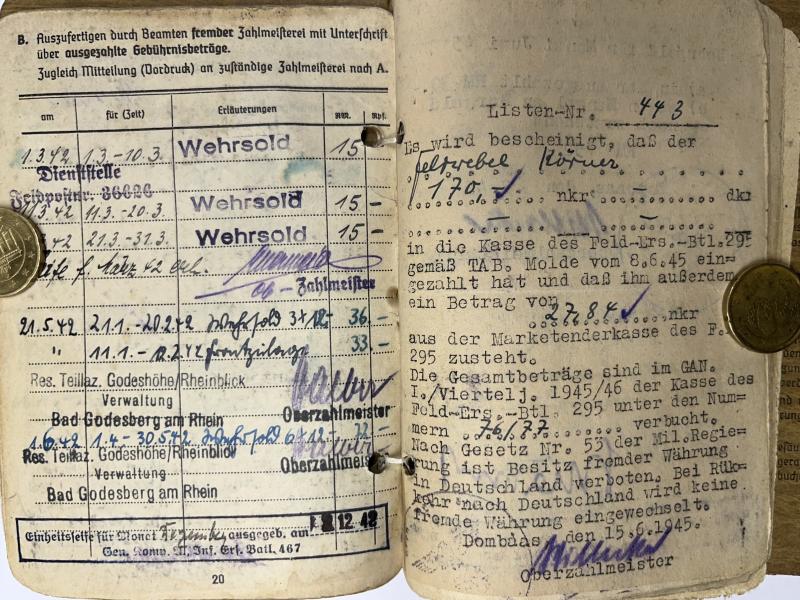 B. Auszufertigen durch Beamten fremder Zahlmeisterei mit Unterschrift
über ausgezahlte Gebührnisbeträge.
Zugleich Mitteilung (Vordruck) an zuständige Zahlmeisterei nach A.
am für (Zeit) Erläuterungen RM. Rpf.
1.3.42 1.3.-10.3. Wehrsold 15 -
Dienststelle
Feldpostnr. 36626
11.3.42 11.3.-20.3. Wehrsold 15 -
21.3.-31.3. Wehrsold 15 -
f. März 42
Zahlmeister
21.5.42 21.1.-20.2.42 Wehrsold 3x12.- 36.-
" 11.1.- Frontzulage 33.-
Res. Teillaz. Godeshöhe/Rheinblick
Verwaltung
Bad Godesberg am Rhein Oberzahlmeister
1.6.42 1.4-30.5.42 Wehrsold 6x12.- 72.-
Res. Teillaz. Godeshöhe/Rheinblick
Verwaltung Oberzahlmeister
Bad Godesberg am Rhein
Einheitsseife für Monat Dezember ausgegeb. am 12 42
Gen. Komp. Inf. Ers. Batl. 467
20
Listen-Nr. 443
Es wird bescheinigt, daß der
Feldwebel Körner
170,- nkr - dkr
- -
in die Kasse des Feld-Ers.-Btl.295
gemäß TAB. Molde vom 8.6.45 ein-
gezahlt hat und daß ihm außerdem
ein Betrag von
27,84 nkr
aus der Marketenderkasse des F.
295 zusteht.
Die Gesamtbeträge sind im GAN.
I./Viertelj. 1945/46 der Kasse des
Feld-Ers.-Btl. 295 unter den Num-
mern 76/77 verbucht.
Nach Gesetz Nr. 53 der Mil.Regie-
rung ist Besitz fremder Währung
in Deutschland verboten. Bei Rük-
kehr nach Deutschland wird keine
fremde Währung eingewechselt.
Dombaas, den 15.6.1945.
Oberzahlmeister